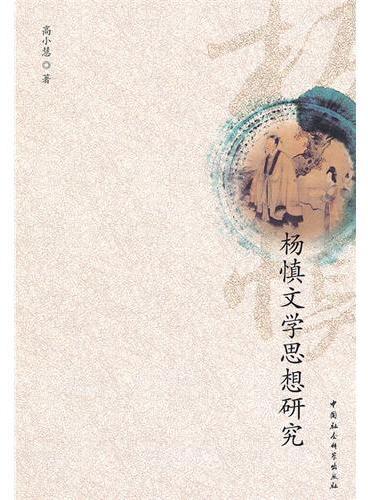 高小慧◎著
杨慎文学思想研究
中国社会科学出版社